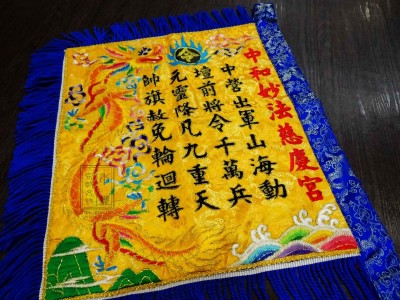 中和妙法慈慶宮
中營出軍山海動
壇前將令千萬兵
元靈降凡九重天
帥旗赦免輪迴轉